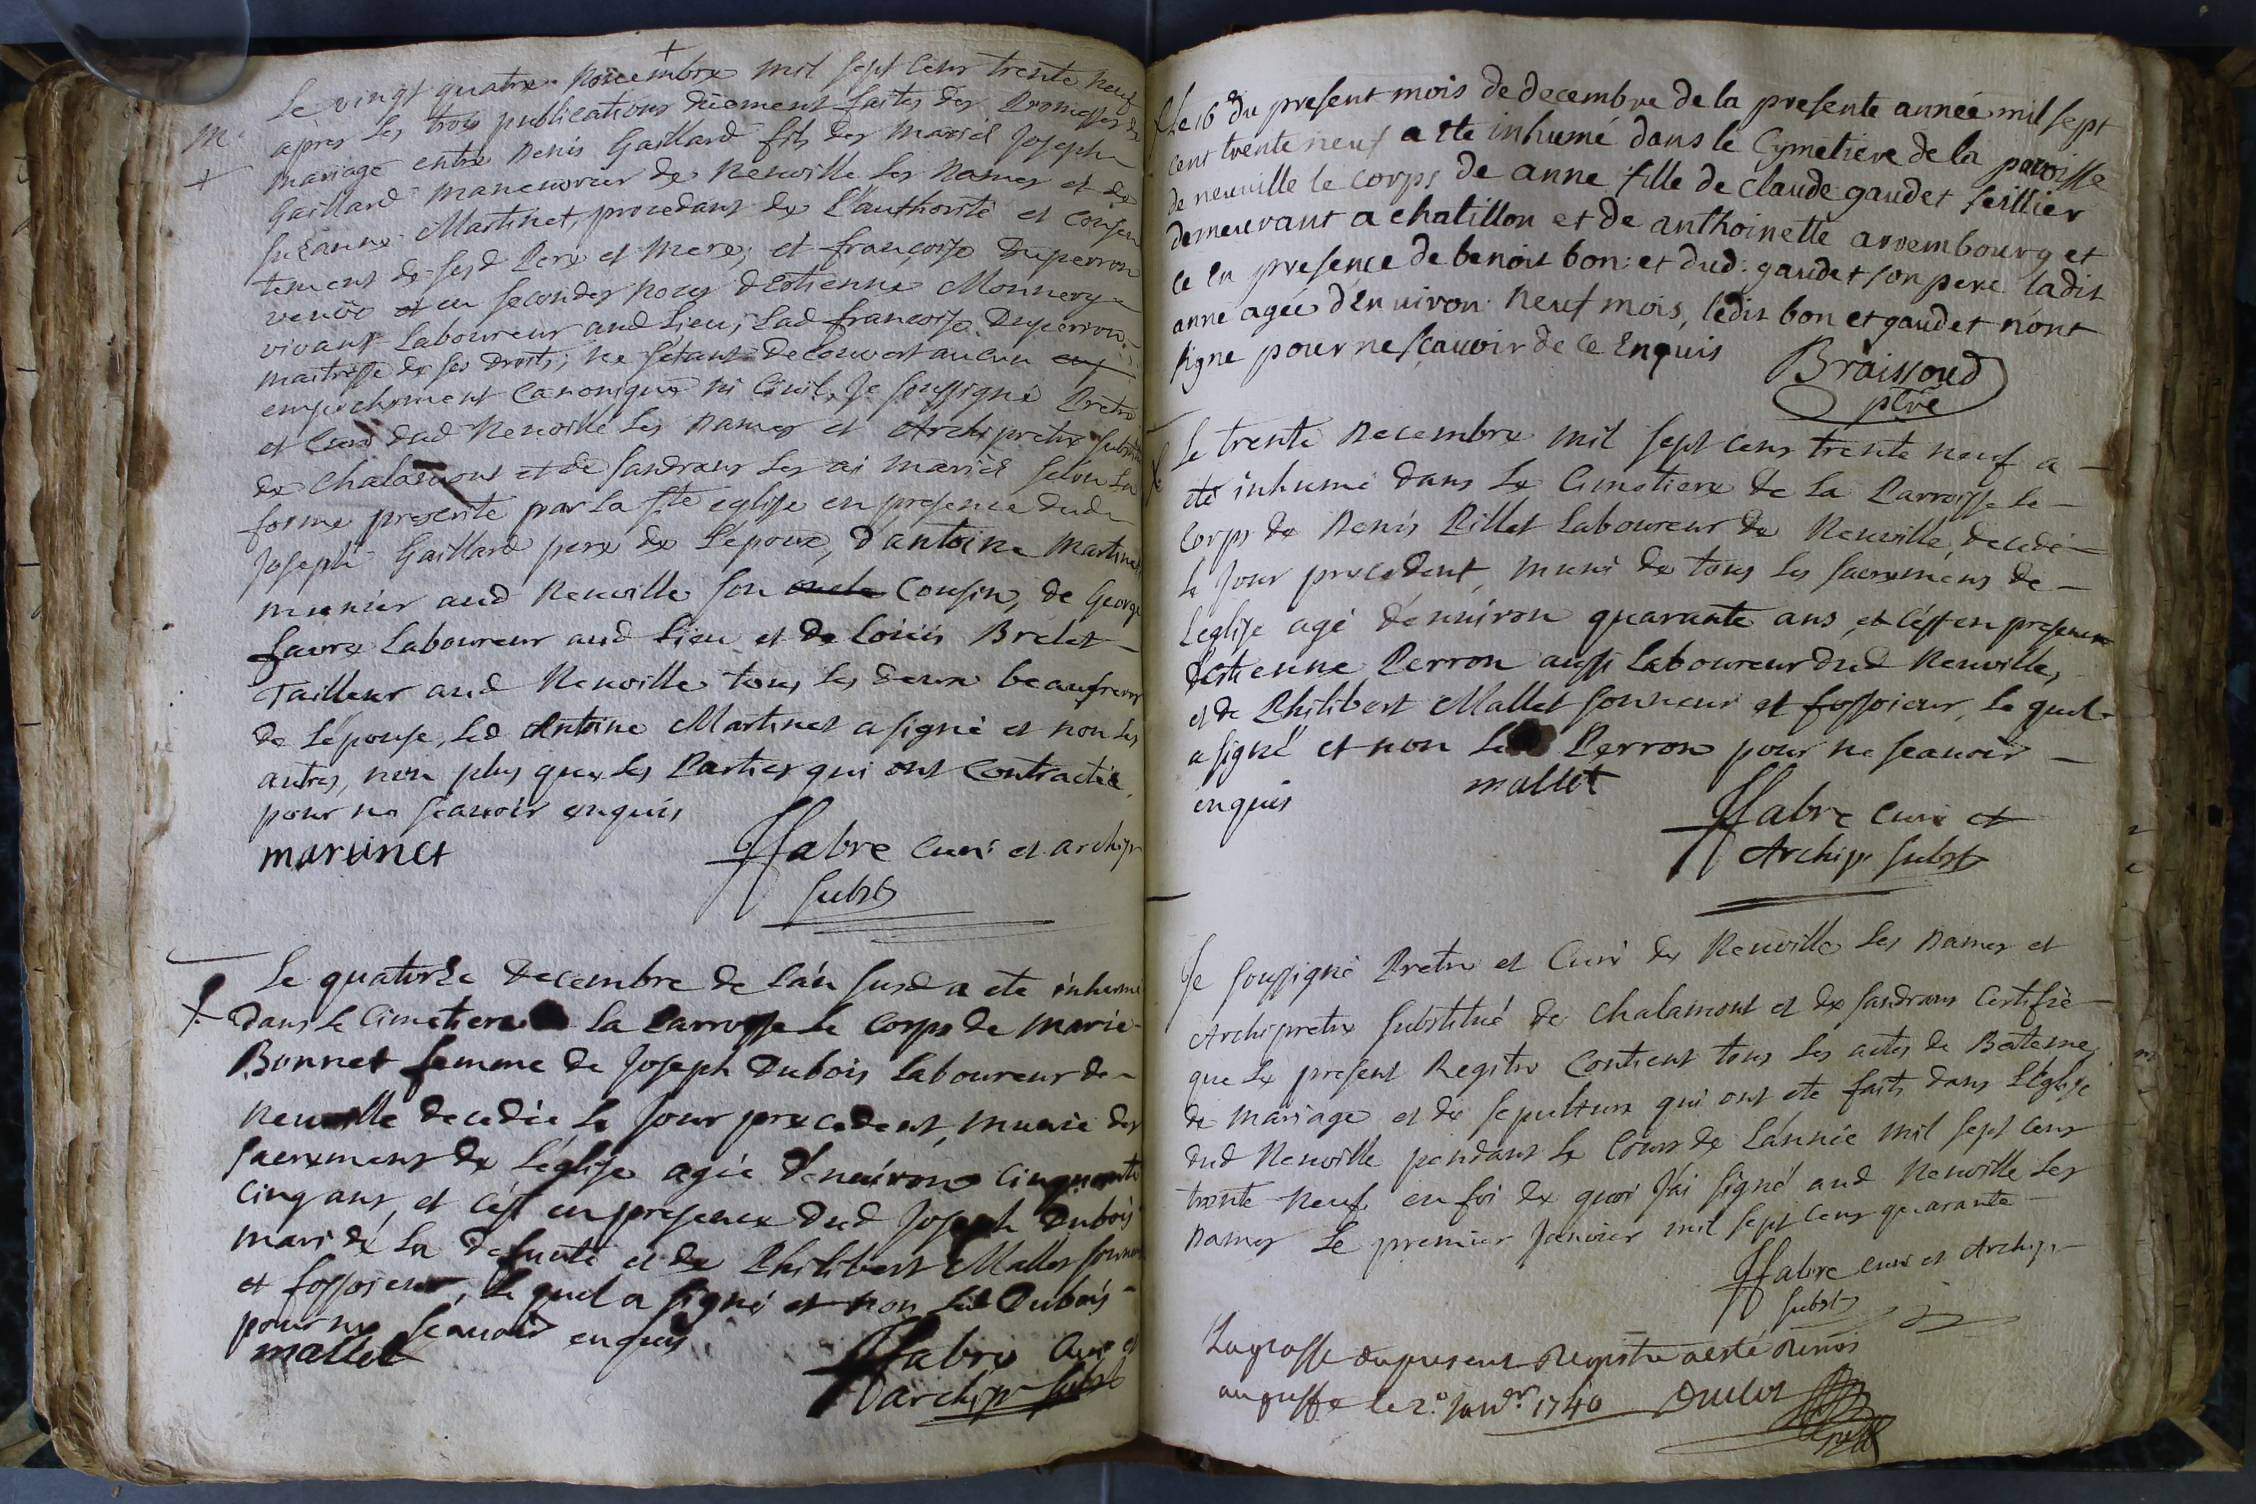 Le vingt quatre novembre mil sept cens trente neuf
après les trois publications düement faites des Promesses de
m.
mariage entre Denis Gaillard fils des mariés Joseph
Gaillard manœuvrier de Neuville les Dames et de
Suzanne Martinet, procedant de l'authorité et consen
tement de sesd Pere et mere, et françoise Duperron
veuve en secondes noces d'Estienne Monnery
vivant Laboureur aud Lieu, Lad françoise Duperron
maitresse de ses droits; ne s'étant decouvert aucun
empechement canonique ni civil, Je soussigné Prêtre
et Curé dud Neuville les Dames et Archiprêtre substitué
de Chalamont et de Sandrans les ai mariés selon la
forme prescrite par la ste eglise en presence dud
Joseph Gaillard pere de L'epoux, d'antoine Martinet
munier aud Neuville son oncle Cousin, de George
favre Laboureur aud Lieu et de Loüis Brelet
Tailleur aud Neuville tous les deux beaufreres
de L'epouse, led Antoine Martinet a signé et non les
autres, non plus que les Parties qui ont contractée
pour ne scavoir enquis
martinet
ffabre Curé et archipr
subst
Le quatorze decembre de L'an susd a ete inhumé
dans le Cimetiere La Parroisse le Corps de Marie
Bonnet femme de Joseph Dubois Laboureur de
Neuville decedée Le Jour precedent, munie des
sacremens de L'eglise agée d'enuiron Cinquante
cinq ans, et c'est en presence dud Joseph Dubois
mari de La defunte et de Philibert Mallet sonneur
et fossoieur, le quel a signé et non led Dubois
pour ne scauoir enquis
mallet
ffabre Curé et
archipr subst
Le 16 du present mois de decembre de la presente année mil sept
cent trente neuf a ete inhumé dans le Cymetiere de la paroisse
de neuville le corps de anne fille de claude gaudet seillier
demeurant a chatillon et de anthoinette arembourg et
ce en presence de benoit bon et dud. gaudet son pere ladit
anne agée d'enuiron neuf mois, ledit bon et gaudet n'ont
signe pour ne scauvoir de ce Enquis
Braissoud
ptre
Le trente Decembre mil sept cens trente neuf a
eté inhumé dans Le Cimetiere de La Parroisse le
Corps de Denis Pillet Laboureur de Neuville, decedé
le Jour precedent, muni de tous les sacremens de
L'eglise agé d'enuiron quarante ans, et c'est en presence
d'Estienne Perron aussi Laboureur dud Neuville,
et de Philibert Mallet sonneur et fossoieur, le quel
a signé et non Led Perron pour ne scauoir
enquis
mallet
ffabre curé et
Archipr subst
Je soussigné Pretre et Curé de Neuville les Dames et
Archipretre substitué de Chalamont et de Sandrans Certifie
que Le present Registre Contient tous les actes de Bateme,
de mariage et de sepulture qui ont ete faits dans L'Eglise
dud Neuville pendant Le Cours de L'année mil sept cens
trente neuf en foi de quoi J'ai signé aud Neuville les
Dames Le premier Janvier mil sept cens quarante
ffabre curé et Archipr
subst
La grosse du present Registre a esté Remis
au greffe le 2e. Janvr 1740 Duclos